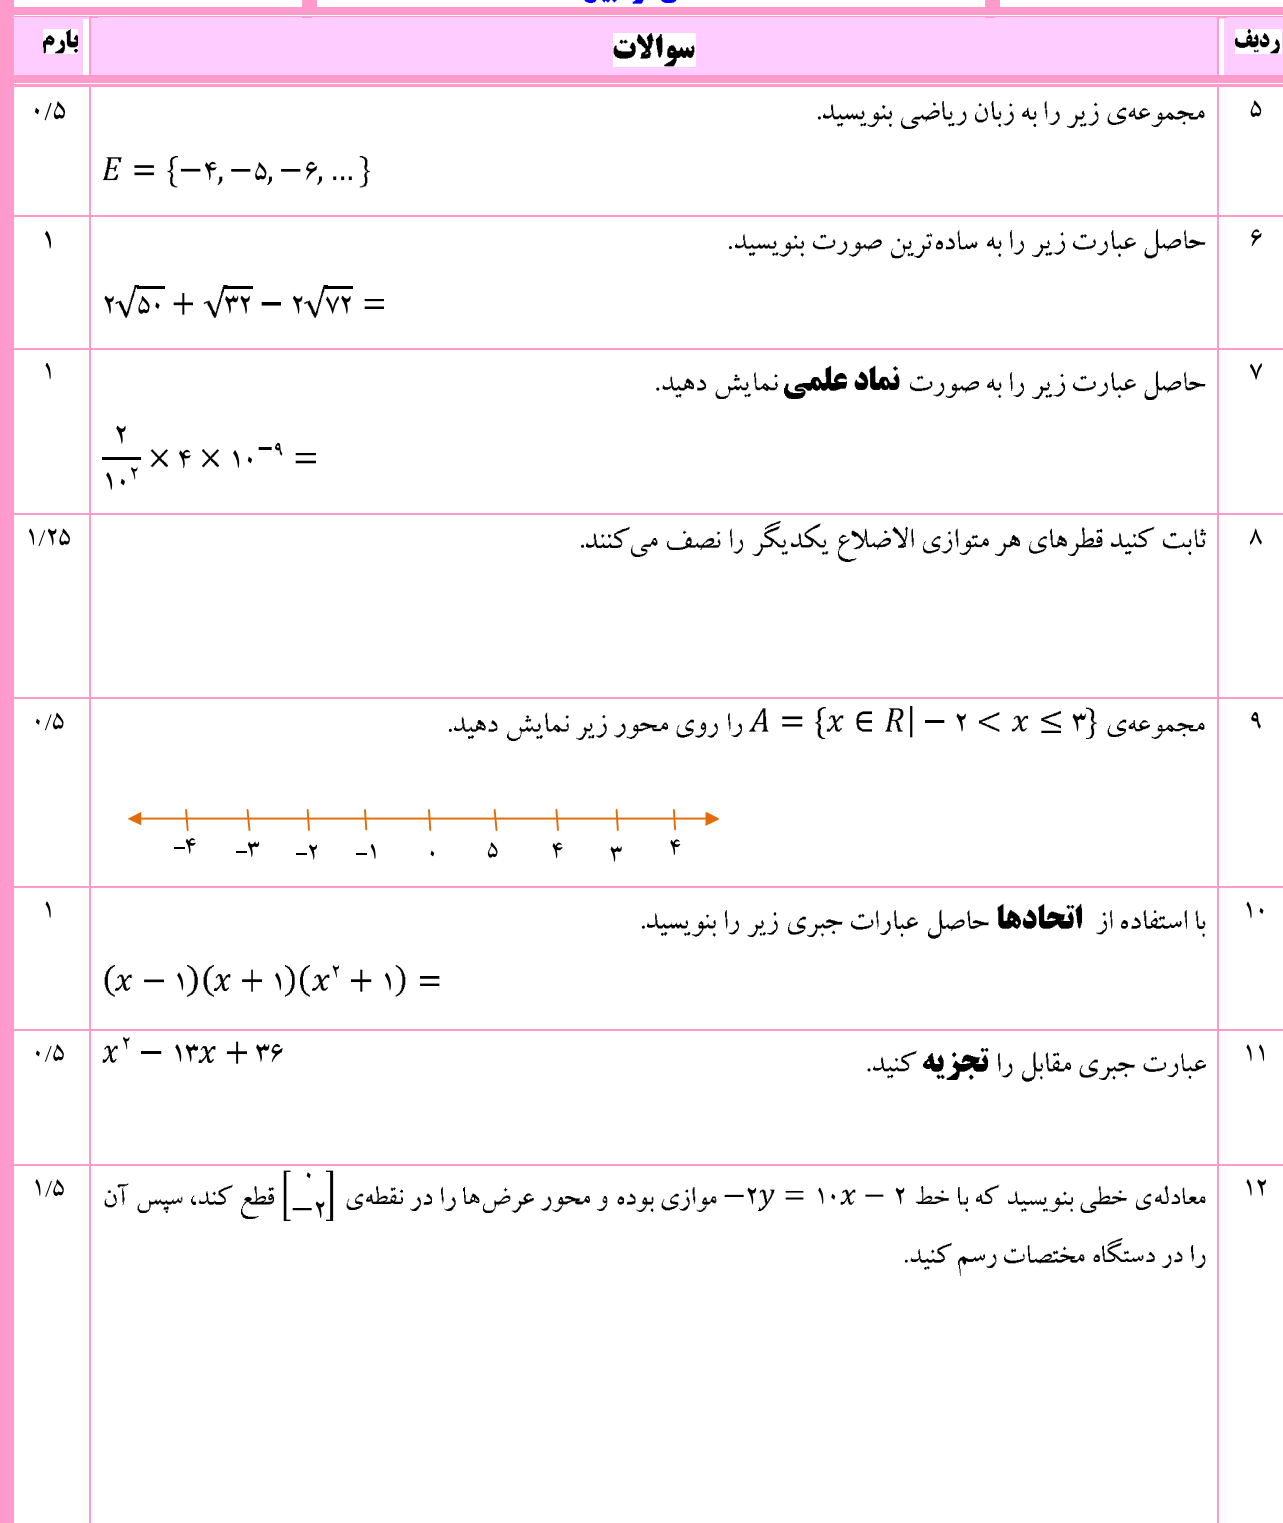 ردیف سوالات بارم
۵ مجموعه‌ی زیر را به زبان ریاضی بنویسید. ۰/۵
E = {−۴, −۵, −۶, … }
۶ حاصل عبارت زیر را به ساده‌ترین صورت بنویسید. ۱
۲√۵۰ + √۳۲ − ۲√۷۲ =
۷ حاصل عبارت زیر را به صورت نماد علمی نمایش دهید. ۱
۲/۱۰^۲ × ۴ × ۱۰^−۹ =
۸ ثابت کنید قطرهای هر متوازی الاضلاع یکدیگر را نصف می‌کنند. ۱/۲۵
۹ مجموعه‌ی A = {x ∈ R| − ۲ < x ≤ ۳} را روی محور زیر نمایش دهید. ۰/۵
−۴ −۳ −۲ −۱ ۰ ۵ ۴ ۳ ۴
۱۰ با استفاده از اتحادها حاصل عبارات جبری زیر را بنویسید. ۱
(x − ۱)(x + ۱)(x^۲ + ۱) =
۱۱ عبارت جبری مقابل را تجزیه کنید. x^۲ − ۱۳x + ۳۶ ۰/۵
۱۲ معادله‌ی خطی بنویسید که با خط −۲y = ۱۰x − ۲ موازی بوده و محور عرض‌ها را در نقطه‌ی [۰ −۲] قطع کند، سپس آن ۱/۵
را در دستگاه مختصات رسم کنید.